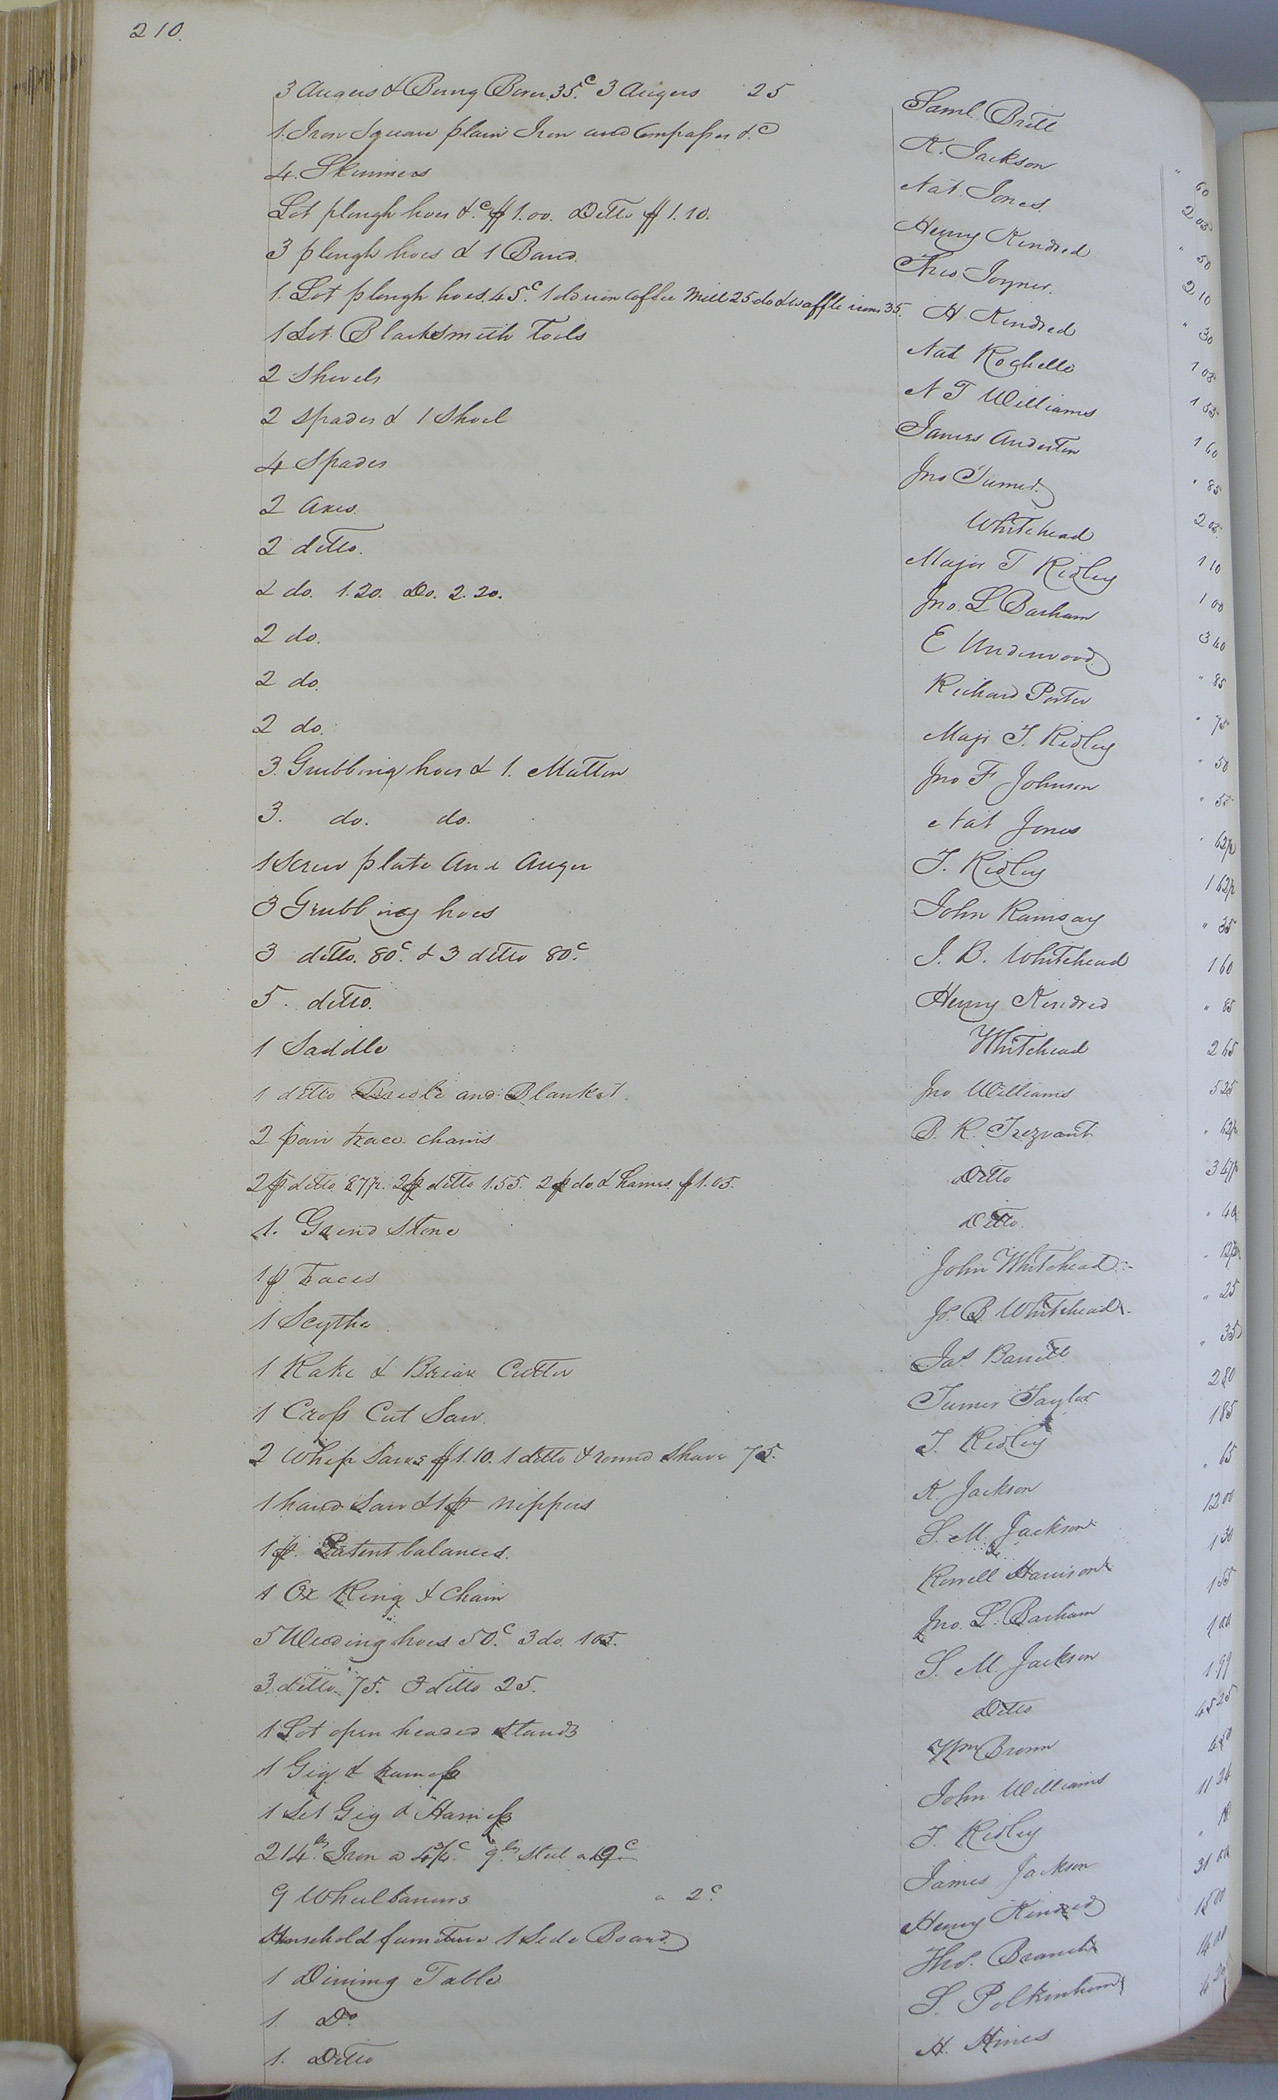 210.
3 Augers & Bung Borer 35.c 3 Augers 25 Saml. Britt " 60
1. Iron Square plain Iron and Compasses &c R. Jackson 2 05
4. Skimmers Nat. Jones " 50
Lot plough hoes &c $1.00. Ditto $1.10. Henry Kindred 2 10
3 plough hoes & 1 Band. Theo Joyner. " 30
1. Lot plough hoes. 45.c 1 old iron Coffee Mill 25 do & waffle irons 35. H Kindred 1 05
1 Set Blacksmith Tools Nat Rochelle
2 Shovels N T Williams 1 60
2 Spades & 1 Shoel James Anderton " 85
4 Spades Jno Turner 2 05
2 Axes. Whitehead 1 10
2 ditto. Major T Ridley 1 00
2 do. 1.20. Do. 2.20. Jno. L Barham 3 40
2 do. E Underwood " 85
2 do. Richard Porter " 75
2 do. Majr T. Ridley " 50
3. Grubbing hoes & 1. Mattox Jno F Johnson " 55
3. do. do. Nat Jones " 62½
1 Screw plate and Auger T. Ridley 1 62½
3 Grubbing hoes John Ramsay " 35
3 ditto. 80c. & 3 ditto 80c. J. B. Whitehead 1 60
5. ditto. Henry Kindred " 85
1 Saddle Whitehead 2 65
1 ditto Bridle and Blanket. Jno Williams 5 25
2 pair trace chains B. K. Trezvant " 62½
2 p ditto 87½. 2 p ditto 1.55. 2 p do. & hames $1.05. Ditto 3 47½
1. Grind Stone Ditto. " 40
1 p Traces John Whitehead " 12½
1 Scythe Jo. B. Whitehead. " 25
1 Rake & Briar Cutter Jas Barrett " 35
1 Cross Cut Saw. James Taylor 2 80
2 Whip Saws $1.10. 1 ditto & round Shave 75. T. Ridley 1 85
1 hand Saw & 1 p nippers R. Jackson " 65
1 p. Patent balances. S. M. Jackson 12 00
1 Ox Ring & chain Harrison 1 30
5 Weeding hoes 50.c 3 do. 105. Jno. L. Barham 1 55
3. ditto 75. 3 ditto 25. S. M. Jackson 1 00
1 Lot open headed Stands Ditto 1 99
1 Gig & harness Wm Brown 45 25
1 Set Gig & Harness John Williams
214 lbs. Iron a c 9 lbs Steel a 9c T. Ridley
9 Wheelbarrows a 2c. James Jackson
Household furniture 1 Side Board Henry Kindred 31 00
1 Dining Table Thos. Branch 15 00
1. Do S. Polkinhorn
1. Ditto H. Hines